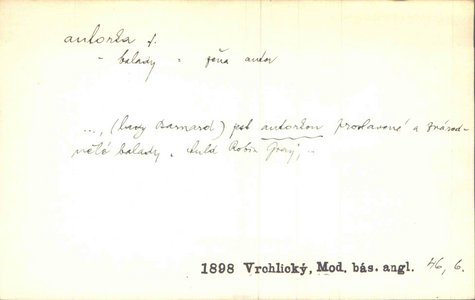 autorka f.
- balady = žena autor
..., (lady Barnard) jest autorkou proslavené a znárod-
nělé balady „Auld Robin Gray",...
1898 Vrchlický, Mod. bás. angl. 46, 6.